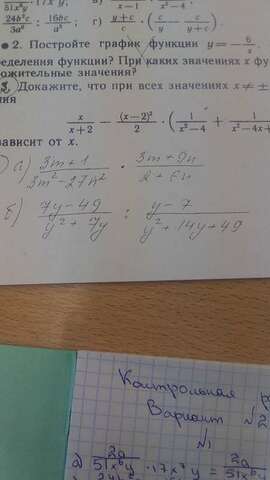 51x⁶y · 17x⁷y; x−1 x²−4
24b²c/3a⁶ : 16bc/a⁵; г) (y+c)/c · (c/y − c/(y+c)).
• 2. Постройте график функции y = −6/x.
ределения функции? При каких значениях x фу
ожительные значения?
3 Докажите, что при всех значениях x ≠ ±
ния
x/(x+2) − (x−2)²/2 · (1/(x²−4) + 1/(x²−4x+
зависит от x.
а) (3m+1)/(3m²−27n²) · (3m+9n)/
б) (7y−49)/(y²+7y) : (y−7)/(y²+14y+49)
Контрольная р
Вариант №2
№1
а) 2a/(51x⁶y) · 17x⁷y = 2a/(51x⁶y